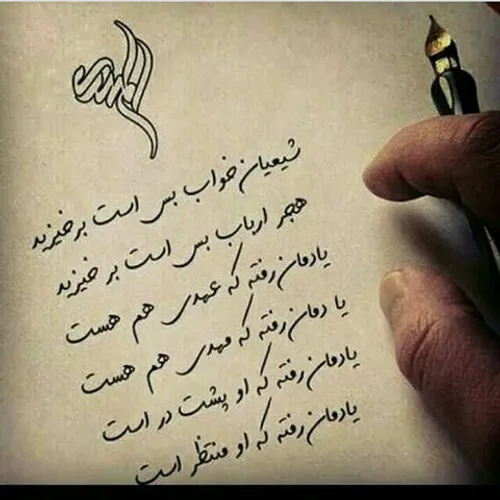 المهدی
شیعیان خواب بس است برخیزید
هجر ارباب بس است بر خیزید
یادمان رفته که عهدی هم هست
یادمان رفته که مهدی هم هست
یادمان رفته که او پشت در است
یادمان رفته که او منتظر است